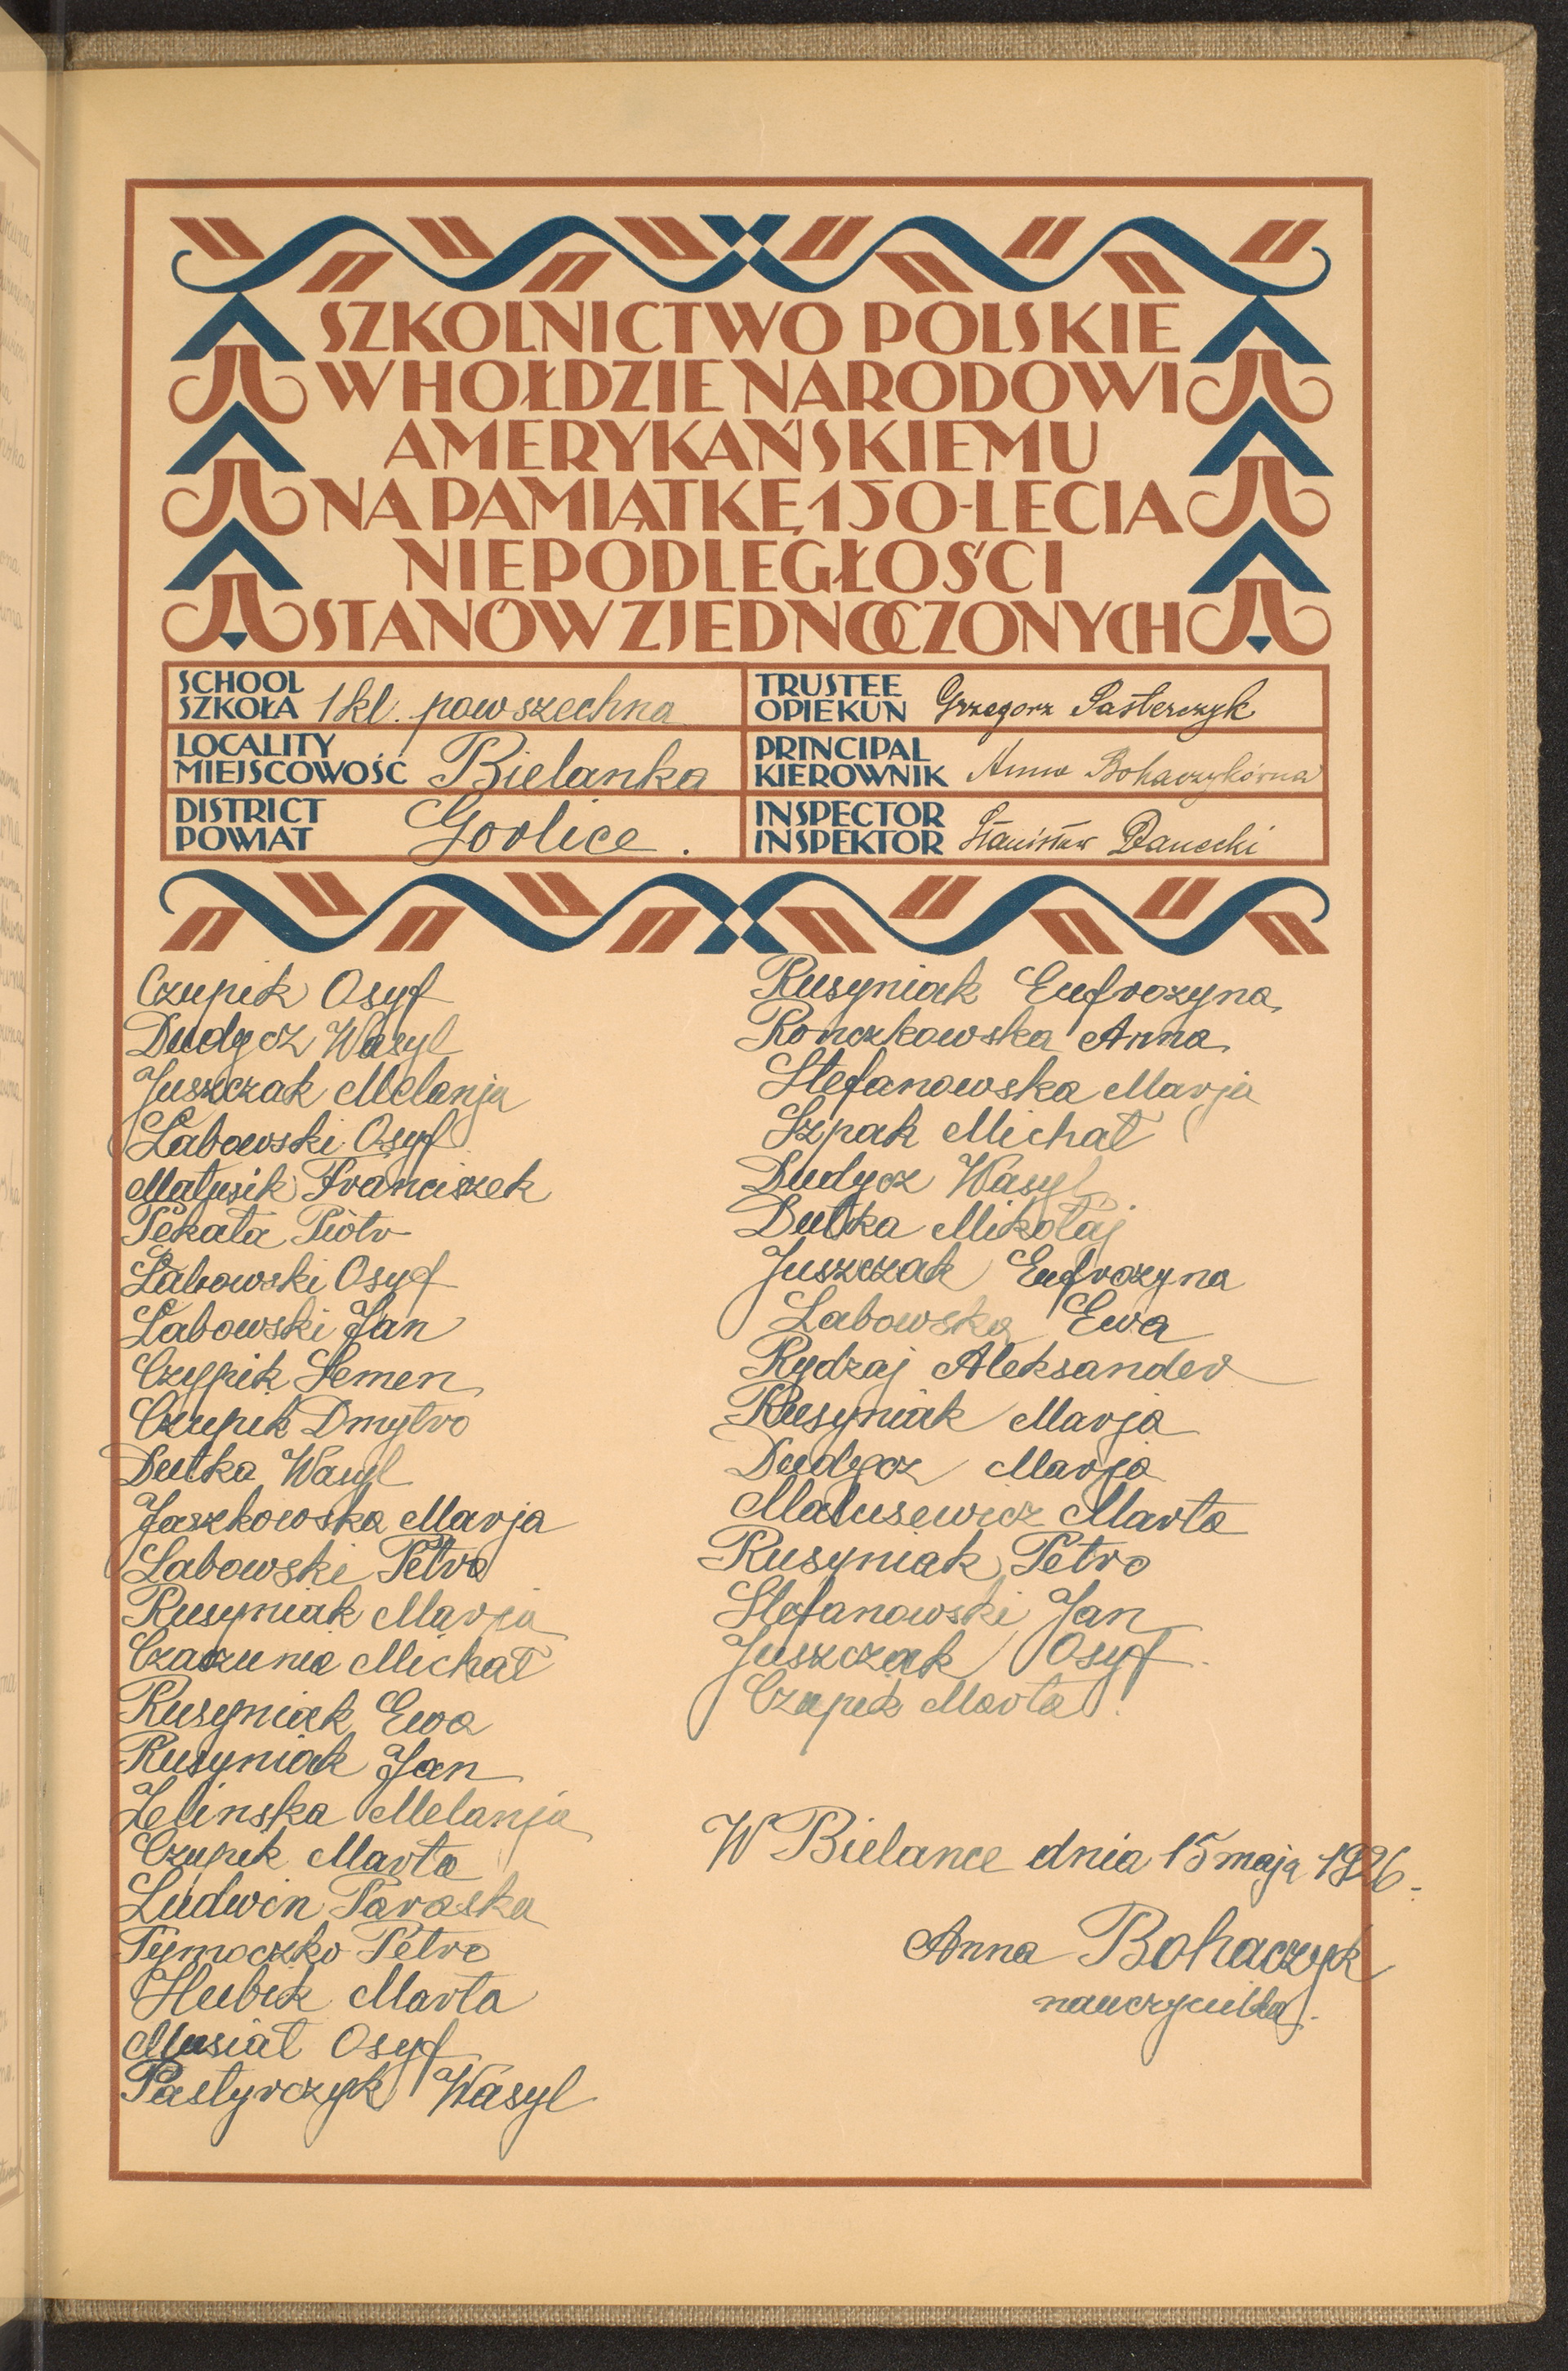 SZKOLNICTWO POLSKIE
W HOŁDZIE NARODOWI
AMERYKAŃSKIEMU
NA PAMIĄTKĘ 150-LECIA
NIEPODLEGŁOŚCI
STANÓW ZJEDNOCZONYCH
SCHOOL
SZKOŁA 1 kl. powszechna
LOCALITY
MIEJSCOWOŚĆ Bielanka
DISTRICT
POWIAT Gorlice.
TRUSTEE
OPIEKUN Grzegorz Pasterczyk
PRINCIPAL
KIEROWNIK Anna Bohaczykówna
INSPECTOR
INSPEKTOR Stanisław Danecki
Czupik Osyf
Dudycz Wasyl
Juszczak Melanja
Łabowski Osyf
Matusik Franciszek
Pekała Piotr
Łabowski Osyf
Łabowski Jan
Czupik Semen
Czupik Dmytro
Dutka Wasyl
Jaszkowska Marja
Łabowski Petro
Rusyniak Marja
Michał
Rusyniak Ewa
Rusyniak Jan
Zelinska Melanja
Czupik Marta
Ludwin Paraska
Tymoczko Petro
Hubik Marta
Musiał Osyf
Pastyrczyk Wasyl
Rusyniak Eufrozyna
Ronczkowska Anna
Stefanowska Marja
Szpak Michał
Dudycz Wasyl
Dutka Mikołaj
Juszczak Eufrozyna
Łabowska Ewa
Rydzaj Aleksander
Rusyniak Marja
Dudycz Marja
Matusewicz Marta
Rusyniak Petro
Stefanowski Jan
Juszczak Osyf
Czupik Marta
W Bielance dnia 15 maja 1926.
Anna Bohaczyk
nauczycielka.